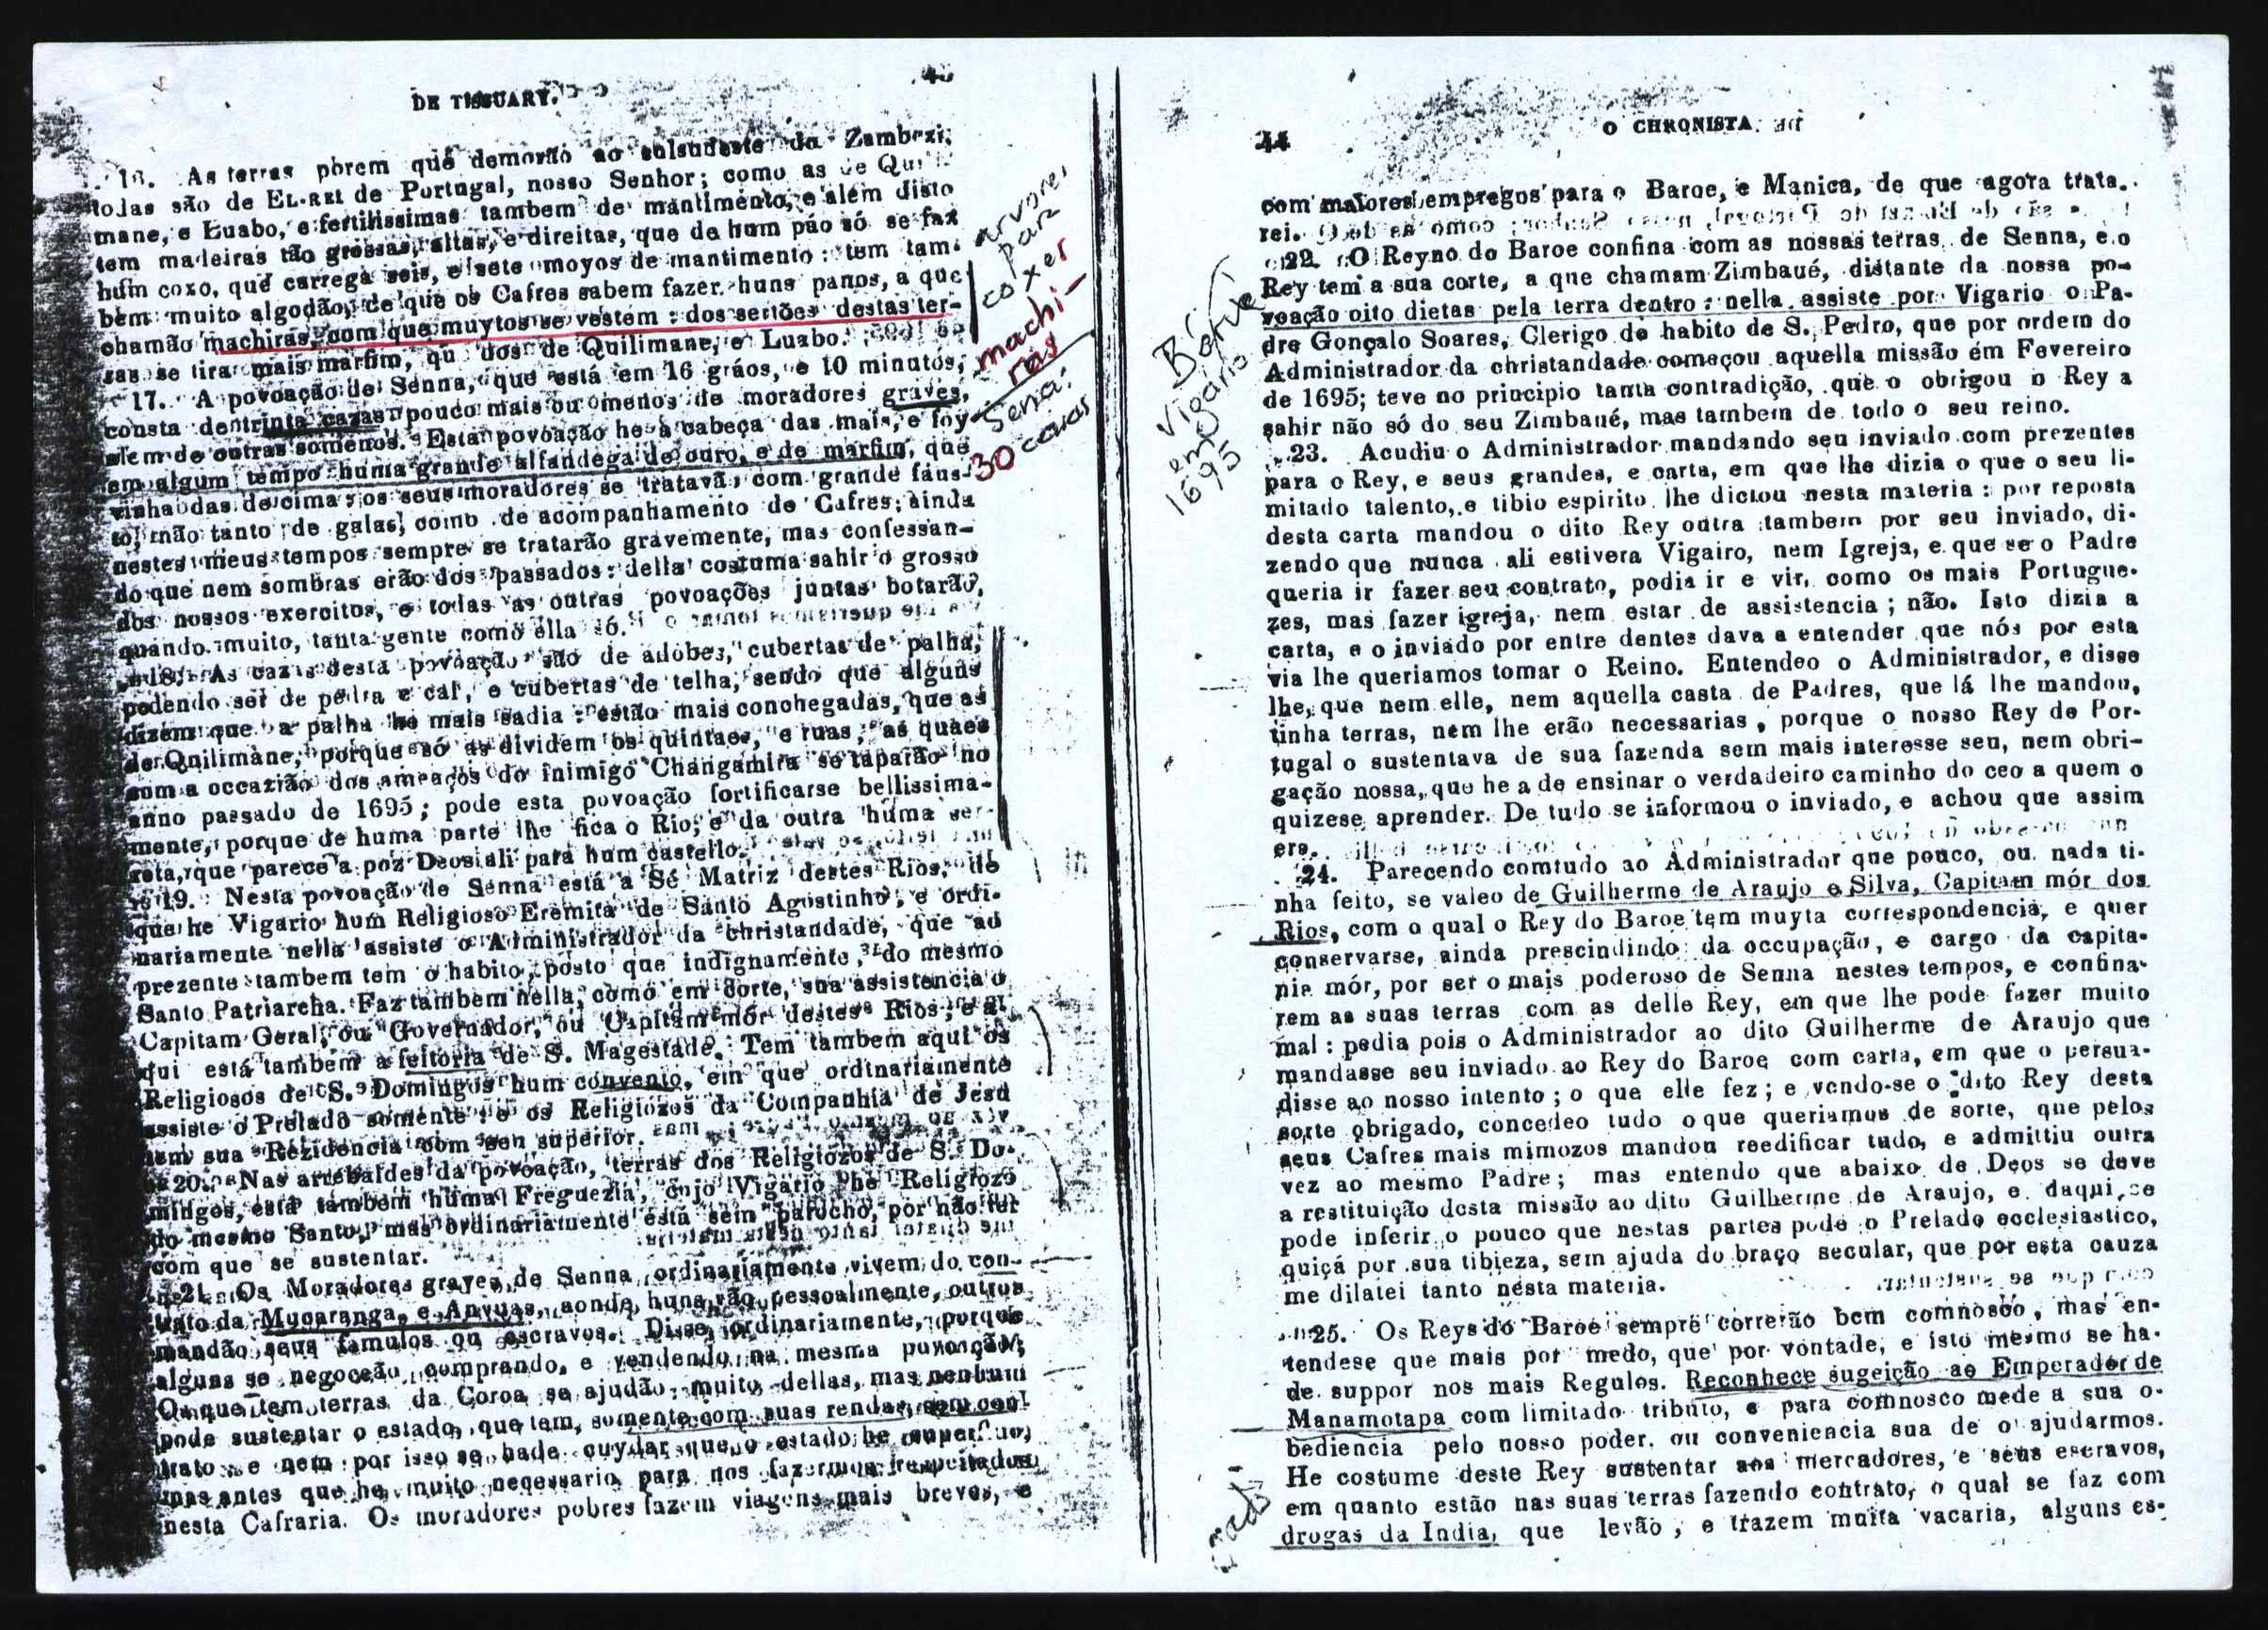 DE TISSUARY.
16. As terras porem que demorão ao sulsudeste do Zambezi,
todas são de EL-REI de Portugal, nosso Senhor; como as de Qui
mane, e Luabo, e fertilissimas tambem de mantimento, e além disto
tem madeiras tão grossas, altas, e direitas, que de hum páo só se faz
hum coxo, que carrega seis, e sete moyos de mantimento: tem tam-
bem muito algodão, de que os Cafres sabem fazer huns panos, a que
chamão machiras, com que muytos se vestem: dos sertões destas ter-
ras se tira mais marfim, qu dos de Quilimane, e Luabo.
17. A povoação de Senna, que está em 16 gráos, e 10 minutos,
consta de trinta cazas pouco mais ou menos de moradores graves,
alem de outras somenos. Esta povoação he a cabeça das mais, e foy
em algum tempo huma grande alfandega de ouro, e de marfim, que
vinha das de cima; os seus moradores se tratavã, com grande faus-
to, não tanto de galas, como de acompanhamento de Cafres; ainda
nestes meus tempos sempre se tratarão gravemente, mas confessan-
do que nem sombras erão dos passados: della costuma sahir o grosso
dos nossos exercitos, e todas as outras povoações juntas botarão,
quando muito, tanta gente como ella só.
18. As cazas desta povoação são de adobes, cubertas de palha,
podendo ser de pedra e cal, e cubertas de telha, sendo que alguns
dizem que a palha he mais sadia: estão mais conchegadas, que as
de Quilimane, porque só as dividem os quintaes, e ruas, as quaes
com a occazião dos ameaços do inimigo Changamira se taparão no
anno passado de 1695; pode esta povoação fortificarse bellissima-
mente, porque de huma parte lhe fica o Rio, e da outra huma ser-
reta, que parece a poz Deos ali para hum castello.
19. Nesta povoação de Senna está a Sé Matriz destes Rios, de
que he Vigario hum Religioso Eremita de Santo Agostinho, e ordi-
nariamente nella assiste o Administrador da christandade, que ao
prezente tambem tem o habito, posto que indignamente, do mesmo
Santo Patriarcha. Faz tambem nella, como em corte, sua assistencia o
Capitam Geral, ou Governador, ou Capitam mór destes Rios, e a-
qui está tambem a feitoria de S. Magestade. Tem tambem aqui os
Religiosos de S. Domingos hum convento, em que ordinariamente
assiste o Prelado somente: e os Religiozos da Companhia de Jesu
tem sua Rezidencia com seu superior.
20. Nas arrebaldes da povoação, terras dos Religiozos de S. Do-
mingos, está tambem huma Freguezia, cujo Vigario he Religiozo
do mesmo Santo, mas ordinariamente está sem parocho, por não ter
com que se sustentar.
21. Os Moradores graves de Senna ordinariamente vivem do con-
trato da Mucaranga, e Anvuas, aonde huns vão pessoalmente, outros
mandão seus famulos ou escravos. Disse ordinariamente, porque
alguns se negoceão comprando, e vendendo na mesma povoação;
Os que tem terras da Coroa se ajudão muito dellas, mas nenhum
pode sustentar o estado, que tem, somente com suas rendas, sem con-
trato: e nem por isso se hade cuydar que o estado he superfluo,
mas antes que he muito necessario para nos fazermos respeitados
nesta Cafraria. Os moradores pobres fazem viagens mais breves, e
arvores
par
coxer
machi-
ras
Sena:
30 casas
44
O CHRONISTA
com maiores empregos para o Baroe, e Manica, de que agora trata-
rei.
22. O Reyno do Baroe confina com as nossas terras de Senna, e o
Rey tem a sua corte, a que chamam Zimbaué, distante da nossa po-
voação oito dietas pela terra dentro: nella assiste por Vigario o Pa-
dre Gonçalo Soares, Clerigo do habito de S. Pedro, que por ordem do
Administrador da christandade começou aquella missão em Fevereiro
de 1695; teve no principio tanta contradição, que o obrigou o Rey a
sahir não só do seu Zimbaué, mas tambem de todo o seu reino.
23. Acudiu o Administrador mandando seu inviado com prezentes
para o Rey, e seus grandes, e carta, em que lhe dizia o que o seu li-
mitado talento, e tibio espirito lhe dictou nesta materia: por reposta
desta carta mandou o dito Rey outra tambem por seu inviado, di-
zendo que nunca ali estivera Vigairo, nem Igreja, e que se o Padre
queria ir fazer seu contrato, podia ir e vir, como os mais Portugue-
zes, mas fazer igreja, nem estar de assistencia; não. Isto dizia a
carta, e o inviado por entre dentes dava a entender que nós por esta
via lhe queriamos tomar o Reino. Entendeo o Administrador, e disse
lhe, que nem elle, nem aquella casta de Padres, que lá lhe mandou,
tinha terras, nem lhe erão necessarias, porque o nosso Rey de Por-
tugal o sustentava de sua fazenda sem mais interesse seu, nem obri-
gação nossa, que he a de ensinar o verdadeiro caminho do ceo a quem o
quizese aprender. De tudo se informou o inviado, e achou que assim
era.
24. Parecendo comtudo ao Administrador que pouco, ou nada ti-
nha feito, se valeo de Guilherme de Araujo e Silva, Capitam mór dos
Rios, com o qual o Rey do Baroe tem muyta correspondencia, e quer
conservarse, ainda prescindindo da occupação, e cargo da capita-
nia mór, por ser o mais poderoso de Senna nestes tempos, e confina-
rem as suas terras com as delle Rey, em que lhe pode fazer muito
mal: pedia pois o Administrador ao dito Guilherme de Araujo que
mandasse seu inviado ao Rey do Baroe com carta, em que o persua-
disse ao nosso intento; o que elle fez; e vendo-se o dito Rey desta
sorte obrigado, concedeo tudo o que queriamos de sorte, que pelos
seus Cafres mais mimozos mandou reedificar tudo, e admittiu outra
vez ao mesmo Padre; mas entendo que abaixo de Deos se deve
a restituição desta missão ao dito Guilherme de Araujo, e daqui se
pode inferir o pouco que nestas partes pode o Prelado ecclesiastico,
quiçá por sua tibieza, sem ajuda do braço secular, que por esta cauza
me dilatei tanto nesta materia.
25. Os Reys do Baroe sempre correrão bem comnosco, mas en-
tendese que mais por medo, que por vontade, e isto mesmo se ha-
de suppor nos mais Regulos. Reconhece sugeição ao Emperador de
Manamotapa com limitado tributo, e para comnosco mede a sua o-
bediencia pelo nosso poder, ou conveniencia sua de o ajudarmos.
He costume deste Rey sustentar aos mercadores, e seus escravos,
em quanto estão nas suas terras fazendo contrato, o qual se faz com
drogas da India, que levão, e trazem muita vacaria, alguns es-
Bárue
Vigário
em
1695